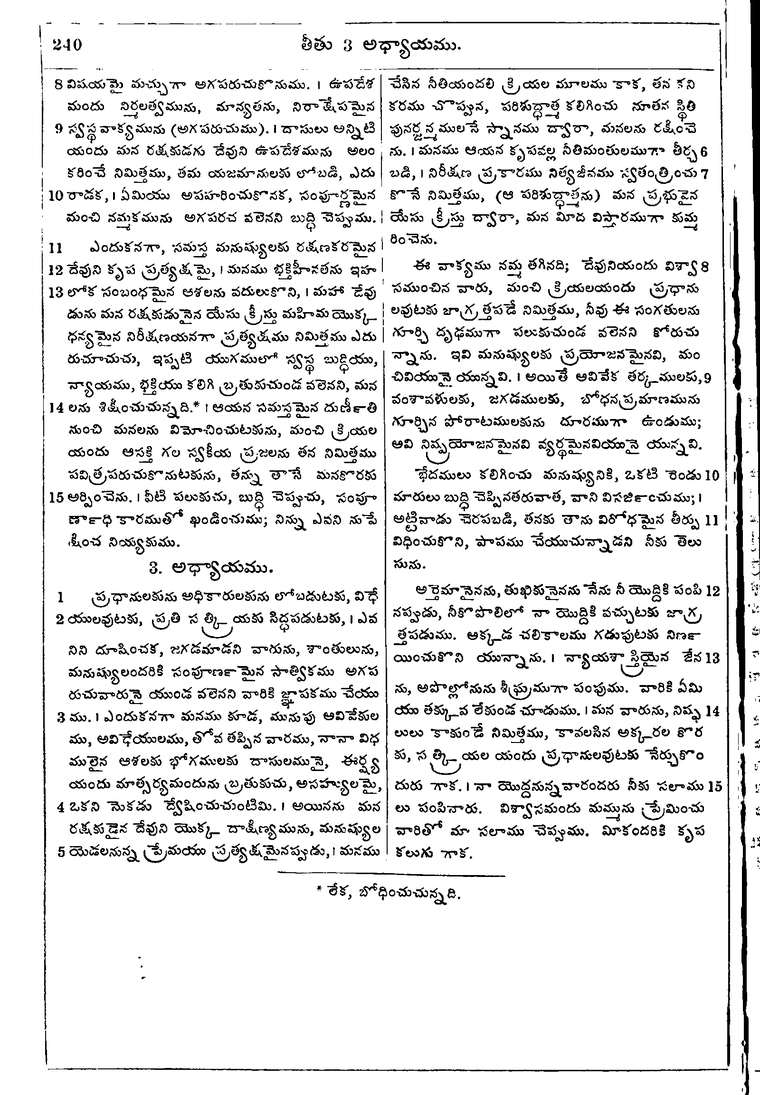 240
తీతు 3 అధ్యాయము.
8 విషయమై మచ్చుగా అగపరుచుకొనుము. । ఉపదేశ
మందు నిర్మలత్వమును, మాన్యతను, నిరాక్షేపమైన
9 స్వస్థవాక్యమును (అగపరుచుము). । దాసులు అన్నిటి
యందు మన రక్షకుడగు దేవుని ఉపదేశమును అలం
కరించే నిమిత్తము, తమ యజమానులకు లోబడి, ఎదు
10 రాడక, । ఏమియు అపహరించుకొనక, సంపూర్ణమైన
మంచి నమ్మకమును అగపరచ వలెనని బుద్ధి చెప్పుము.
11 ఎందుకనగా, సమస్త మనుష్యులకు రక్షణకరమైన
12 దేవుని కృప ప్రత్యక్షమై, । మనము భక్తిహీనతను ఇహ
13 లోక సంబంధమైన ఆశలను వదులుకొని, । మహా దేవు
డును మన రక్షకుడునైన యేసు క్రీస్తు మహిమ యొక్క
ధన్యమైన నిరీక్షణయనగా ప్రత్యక్షము నిమిత్తము ఎదు
రుచూచుచు, ఇప్పటి యుగములో స్వస్థ బుద్ధియు,
న్యాయము, భక్తియు కలిగి బ్రతుకుచుండ వలెనని, మన
14 లను శిక్షించుచున్నది.* । ఆయన సమస్తమైన దుర్ణీతి
నుంచి మనలను విమోచించుటకును, మంచి క్రియల
యందు ఆసక్తి గల స్వకీయ ప్రజలను తన నిమిత్తము
పవిత్రపరుచుకొనుటకును, తన్ను తానే మనకొరకు
15 అర్పించెను. । వీటి పలుకుచు, బుద్ధి చెప్పుచు, సంపూ
ర్ణాధి కారముతో ఖండించుము; నిన్ను ఎవని నుపే
క్షించ నియ్యకుము.
3. అధ్యాయము.
1 ప్రధానులకును అధికారులకును లోబడుటకు, విధే
2 యులవుటకు, ప్రతి సత్క్రియకు సిద్ధపడుటకు, । ఎవ
నిని దూషించక, జగడమాడని వారును, శాంతులును,
మనుష్యులందరికి సంపూర్ణమైన సాత్వికము అగప
రుచువారునై యుండ వలెనని వారికి జ్ఞాపకము చేయు
3 ము. । ఎందుకనగా మనము కూడ, మునుపు అవివేకుల
ము, అవిధేయులము, తోవ తప్పిన వారము, నానా విధ
ములైన ఆశలకు భోగములకు దాసులమునై, ఈర్ష్య
యందు మాత్సర్యమందును బ్రతుకుచు, అసహ్యులమై,
4 ఒకని నొకడు ద్వేషించుచుంటిమి. । అయినను మన
రక్షకుడైన దేవుని యొక్క దాక్షిణ్యమును, మనుష్యుల
5 యెడలనున్న ప్రేమయు ప్రత్యక్షమైనప్పుడు, । మనము
చేసిన నీతియందలి క్రియల మూలము కాక, తన కని
కరము చొప్పున, పరిశుద్ధాత్మ కలిగించు నూతన స్థితి
పునర్జన్మములనే స్నానము ద్వారా, మనలను రక్షించె
ను. । మనము ఆయన కృపవల్ల నీతిమంతులముగా తీర్చ 6
బడి, । నిరీక్షణ ప్రకారము నిత్యజీవము స్వతంత్రించు 7
కొనే నిమిత్తము, (ఆ పరిశుద్ధాత్మను) మన ప్రభుడైన
యేసు క్రీస్తు ద్వారా, మన మీద విస్తారముగా కుమ్మ
రించెను.
ఈ వాక్యము నమ్మ తగినది; దేవునియందు విశ్వా 8
సముంచిన వారు, మంచి క్రియలయందు ప్రధాను
లవుటకు జాగ్రత్తపడే నిమిత్తము, నీవు ఈ సంగతులను
గూర్చి దృఢముగా పలుకుచుండ వలెనని కోరుచు
న్నాను. ఇవి మనుష్యులకు ప్రయోజనమైనవి, మం
చివియునై యున్నవి. । అయితే అవివేక తర్కములకు, 9
వంశావళులకు, జగడములకు, బోధనప్రమాణమును
గూర్చిన పోరాటములకును దూరముగా ఉండుము;
అవి నిష్ప్రయోజనమైనవి వ్యర్థమైనవియునై యున్నవి.
భేదములు కలిగించు మనుష్యునికి, ఒకటి రెండు 10
మారులు బుద్ధి చెప్పినతరువాత, వాని విసర్జించుము; ।
అట్టివాడు చెరపబడి, తనకు తాను విరోధమైన తీర్పు 11
విధించుకొని, పాపము చేయుచున్నాడని నీకు తెలు
సును.
అర్తెమానైనను, తుఖికునైనను నేను నీ యొద్దికి పంపి 12
నప్పుడు, నీకొపొలిలో నా యొద్దికి వచ్చుటకు జాగ్ర
త్తపడుము. అక్కడ చలికాలము గడుపుటకు నిర్ణ
యించుకొని యున్నాను. । న్యాయశాస్త్రియైన జేన 13
ను, అపొల్లోనును శీఘ్రముగా పంపుము. వారికి ఏమి
యు తక్కువ లేకుండ చూడుము. । మన వారును, నిష్ఫ 14
లులు కాకుండే నిమిత్తము, కావలసిన అక్కరల కొర
కు, సత్క్రియల యందు ప్రధానులవుటకు నేర్చుకొం
దురు గాక. । నా యొద్దనున్నవారందరు నీకు సలాము 15
లు పంపినారు. విశ్వాసమందు మమ్మును ప్రేమించు
వారితో మా సలాము చెప్పుము. మీకందరికి కృప
కలుగు గాక.
* లేక, బోధించుచున్నది.